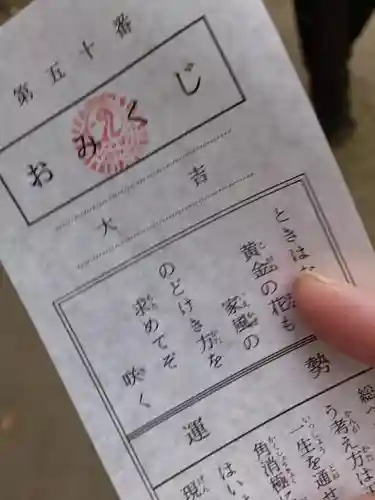 第五十番
おみくじ
大吉
ときは
黄金の花も
家風の
のどけき方を
求めてぞ
咲く
運勢
総
う考え方は
一生を通せ
角消極
はい
現